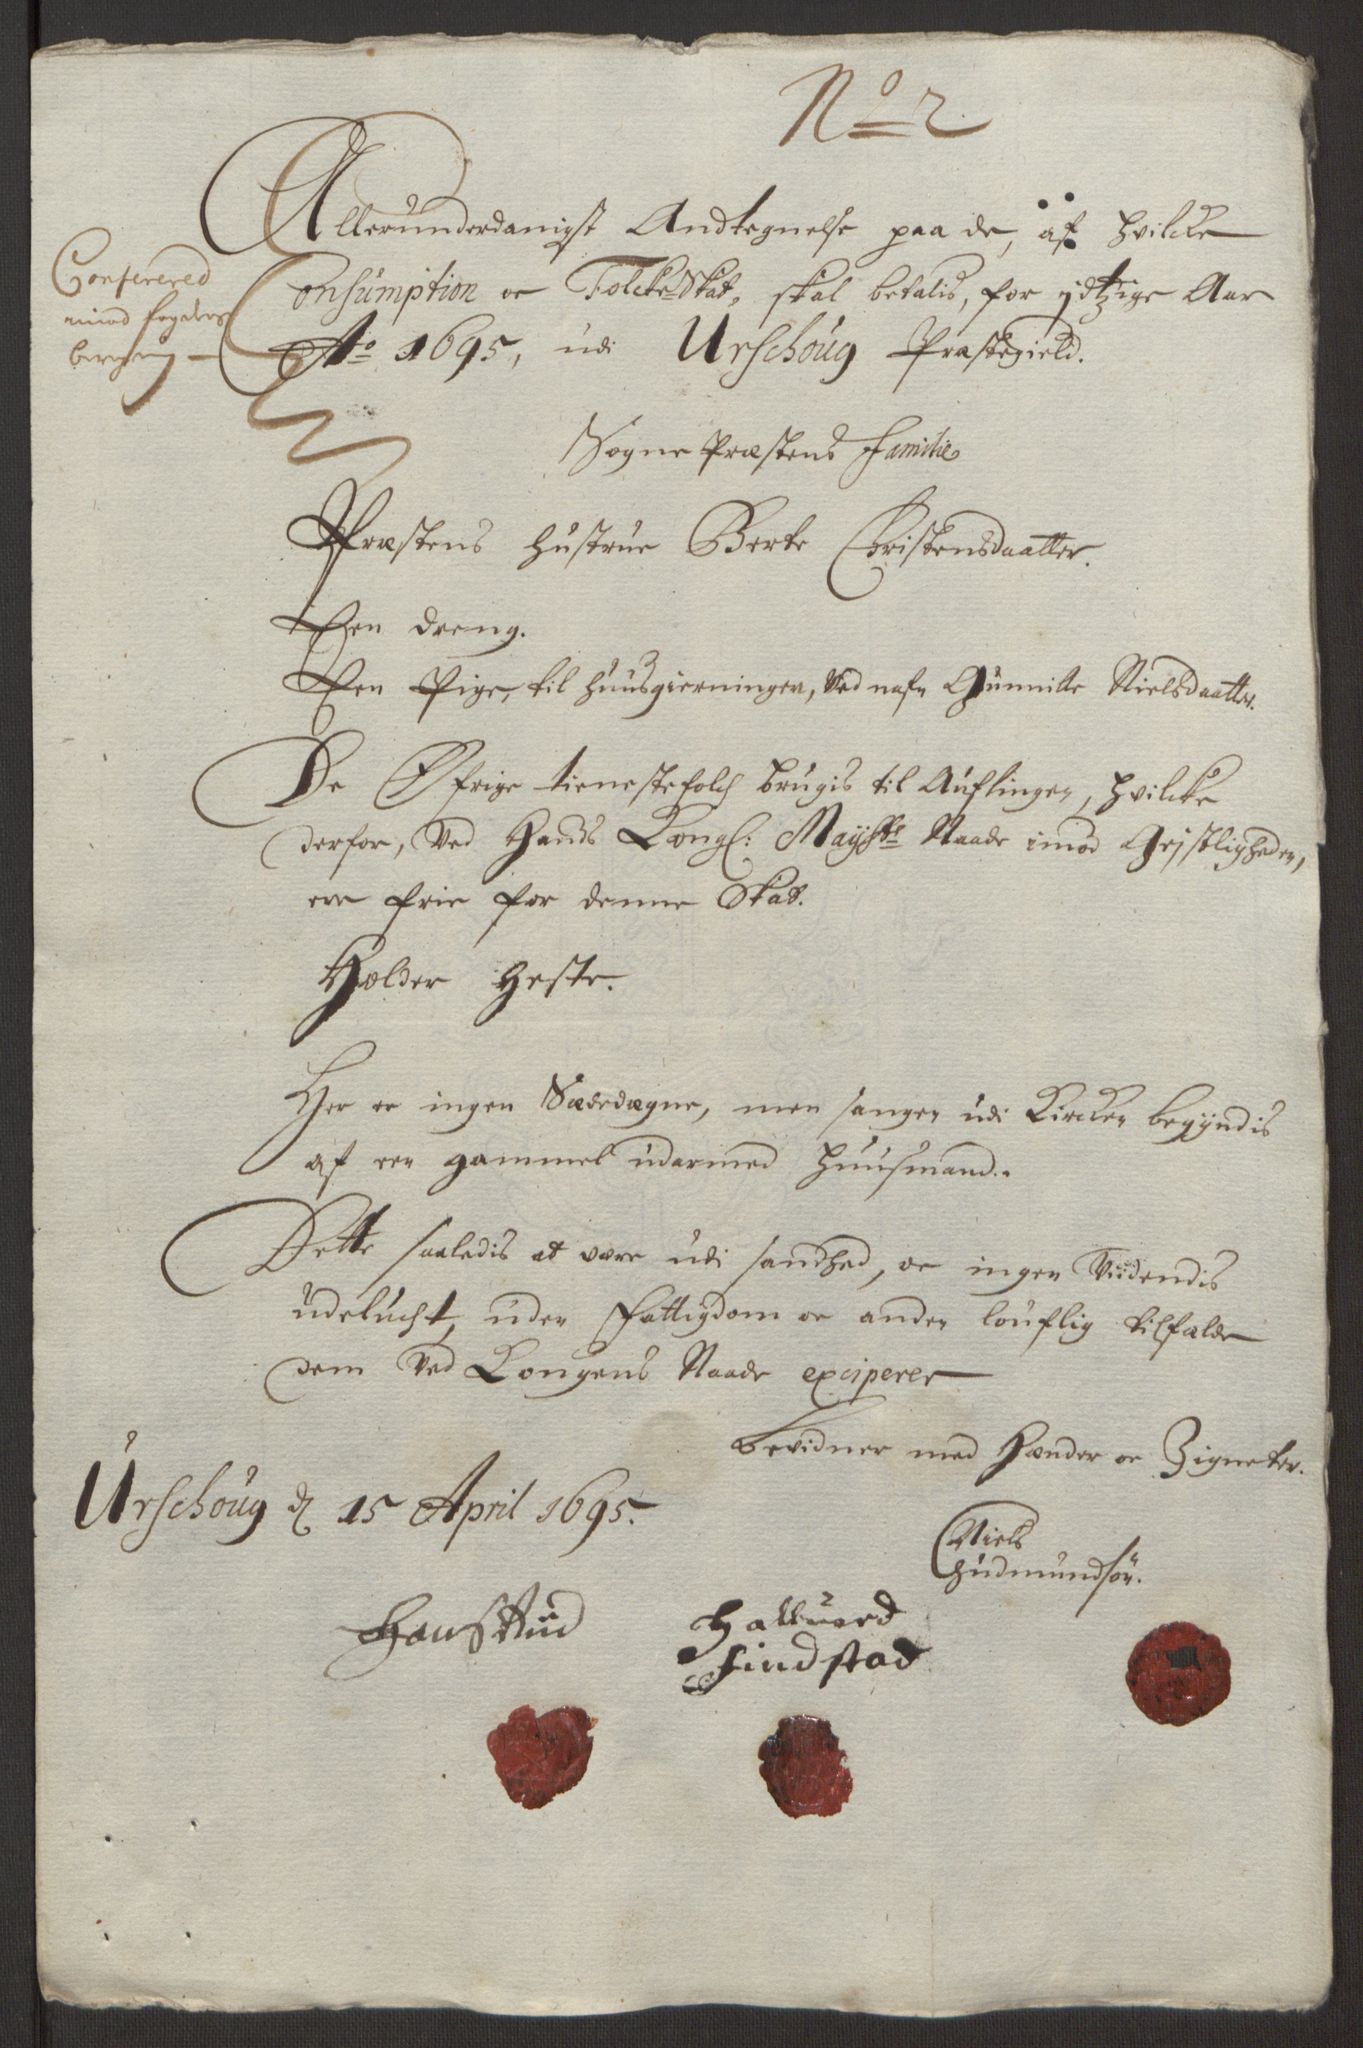 No 2
Allerunderdanigst Andtegnelse paa de, af hvilcke
Consumption oc FolckeSkat, skal betalis, for jdtzige Aar
Ao 1695, udi Urschoug Præstegield.
Conferered
imod fogdens
Sogne Præstens Familie
Præstens Hustrue Berte Christensdaatter.
Een dreng.
Een Pige, til Huusgierningen, ved nafn Gunnille Nielsdaatter.
De Øfrige tienestefolch brugis til Auflingen, hvilcke
derfor, ved Hands Kongl: Mayhts Naade imod Geistligheden,
ere frie for denne Skat.
Holder Heste.
Her er ingen Sædedegne, men sangen udi Kircken begyndis
af een gammel udarmed Huusmand.
Dette saaledis at være udi sandhed, oc ingen Viidendis
udelucht, uden Fattigdom oc anden louflig tilfælde
dem ved Kongens Naade exciperer
bevidner med Hænder oc Zigneter.
Urschoug d 15 April 1695.
Niels
Gudmundsøn.
Hans
Halluord
Findstad